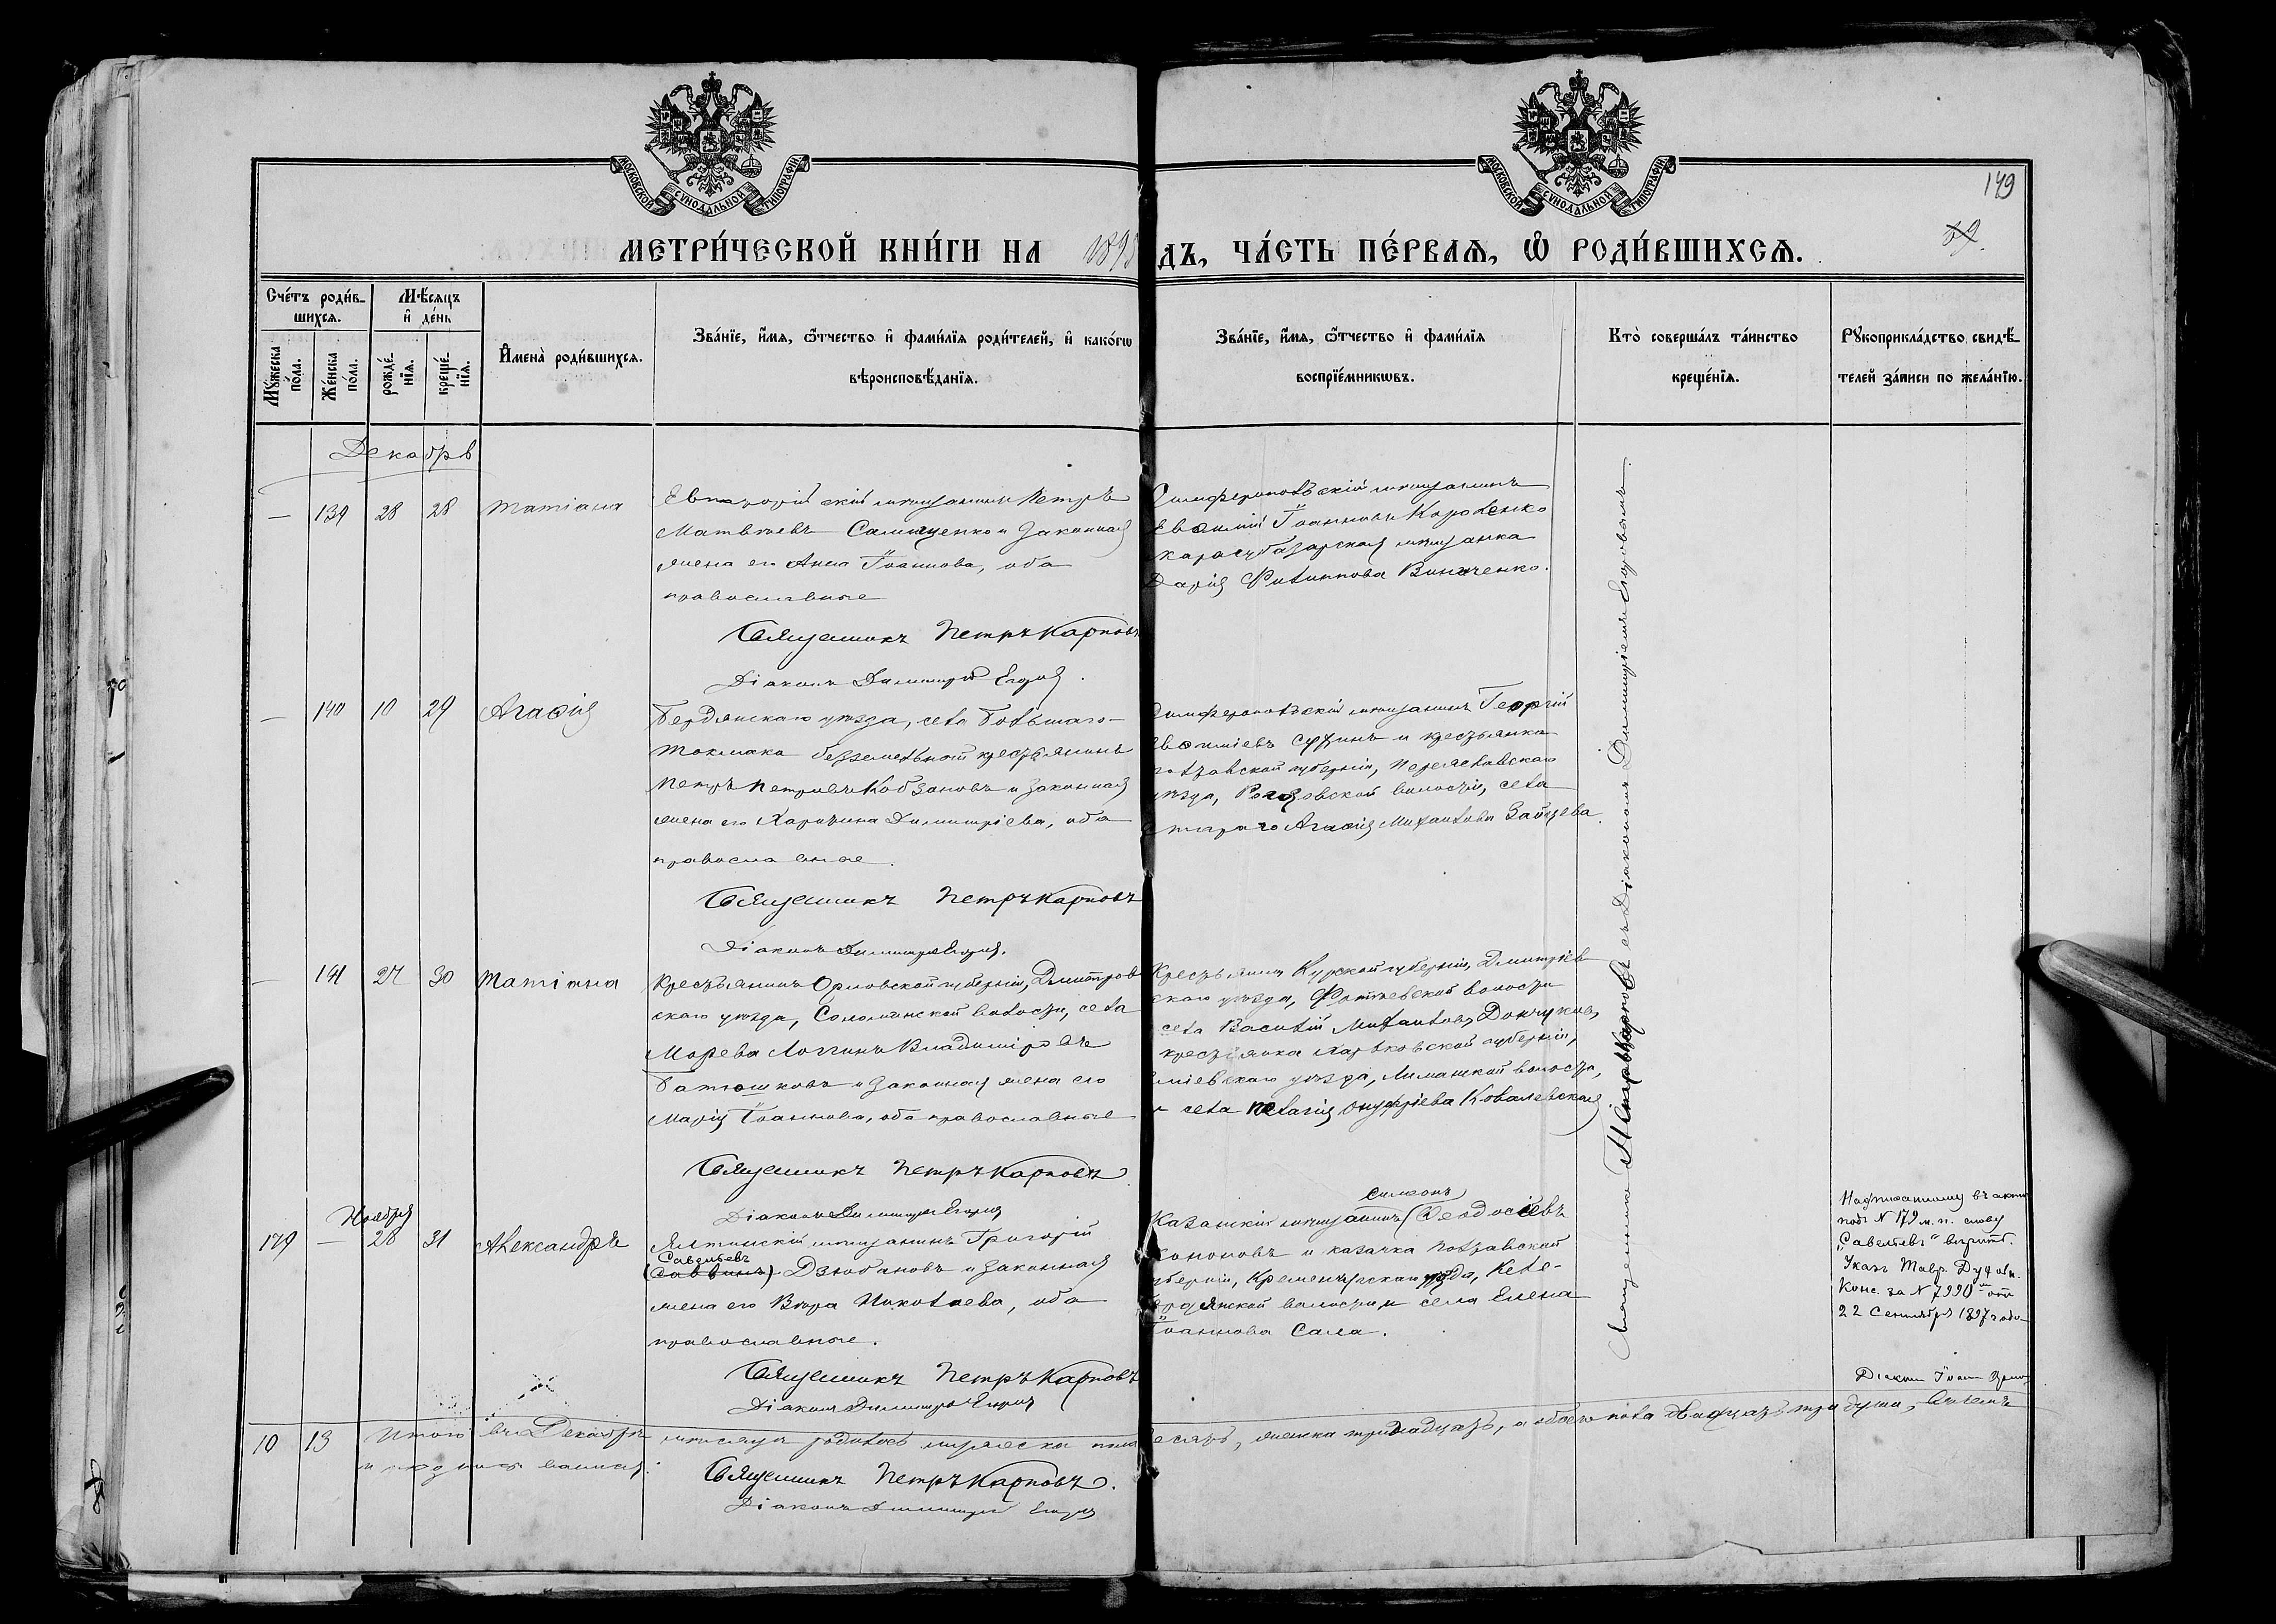 МОСКОВСКОЙ СУНОДАЛЬНОЙ ТИПОГРАФІИ
МОСКОВСКОЙ СУНОДАЛЬНОЙ ТИПОГРАФІИ
149
89
МЕТРИ́ЧЕСКОЙ КНИ́ГИ НА 189
ДЪ, ЧА́СТЬ ПЕ́РВАѦ, Ѡ҆ РОДИ́ВШИХСѦ.
Сче́тъ роди́в-
шихсѧ.
Мѣ́сѧцъ
и҆ де́нь
Мꙋ́жеска по́ла.
Же́нска по́ла.
рожде́-
нїѧ.
креще́-
нїѧ.
И҆мена̀ роди́вшихсѧ.
Зва́нїе, и҆́мѧ, ѻ҆́тчество и҆ фами́лїѧ роди́телей, и҆ како́гѡ
вѣроисповѣ́данїѧ.
Зва́нїе, и҆́мѧ, ѻ҆́тчество и҆ фами́лїѧ
воспрїе́мникѡвъ.
Кто̀ соверша́лъ та́инство
креще́нїѧ.
Рꙋкоприкла́дство свидѣ́-
телей за́писи по жела́нїю.
Декабрь
— 139 28 28 Татіана
Евпаторійскій мѣщанинъ Петръ
Матвѣевъ Самащенко и законная
жена его Анна Іоаннова, оба
православные
Священникъ Петръ Карповъ
Діаконъ Димитрій Егоровъ.
Симферопольскій мѣщанинъ
Евѳимій Іоанновъ Короленко
карасубазарская мѣщанка
Дарія Филиппова Винниченко.
— 140 10 29 Агаѳія
Бердянскаго уѣзда, села Большаго-
Токмака безземельный крестьянинъ
Петръ Петровъ Кобзановъ и законная
жена его Харитина Димитріева, оба
православные.
Священникъ Петръ Карповъ
Діаконъ Димитрій Егоровъ.
Симферопольскій мѣщанинъ Георгій
Евѳиміевъ и крестьянка
Полтавской губерніи, Переяславскаго
уѣзда, Рогозовской волости, села
Агаѳія Михаилова Зайцева.
— 141 27 30 Татіана
Крестьянинъ Орловской губерніи, Дмитров
скаго уѣзда, Соломинской волости, села
Морева Логгинъ Владиміровъ
Батюшковъ и законная жена его
Марія Іоаннова, оба православные
Священникъ Петръ Карповъ
Діаконъ Димитрій Егоровъ
Крестьянинъ Курской губерніи, Дмитріев
скаго уѣзда, Фатѣевской волости
села Василій Михаиловъ Дончуковъ,
крестьянка Харьковской губерніи,
Зміевскаго уѣзда, Лиманской волости,
и села Пелагія Онуфріева Ковалевская.
Ноября
179 — 28 31 Александръ
Ялтинскій мѣщанинъ Григорій
Савельевъ
(Саввинъ) Дзюбановъ и законная
жена его Вѣра Николаева, оба
православные.
Священникъ Петръ Карповъ
Діаконъ Димитрій Егоровъ
Симеонъ
Казанскій мѣщанинъ (Ѳеодосіевъ
Кононовъ и казачка Полтавской
губерніи, Кременчугскаго уѣзда, Келе-
бердянской волости и села Елена
Іоаннова Сала.
Священникъ Петръ Карповъ съ Діакономъ Димитріемъ Егоровымъ.
Надписанному въ актѣ
подъ N 179 м. п. слову
„Савельевъ" вѣрить.
Указъ Тавр. Духовн.
Конс. за N 7990 отъ
22 Сентября 1897 года
Діаконъ Іоаннъ
10 13 Итого въ Декабрѣ мѣсяцѣ родилось мужеска пола
десять, женска тринадцать, а обоего пола двадцать три души,
Священникъ Петръ Карповъ.
Діаконъ Димитрій Егоровъ